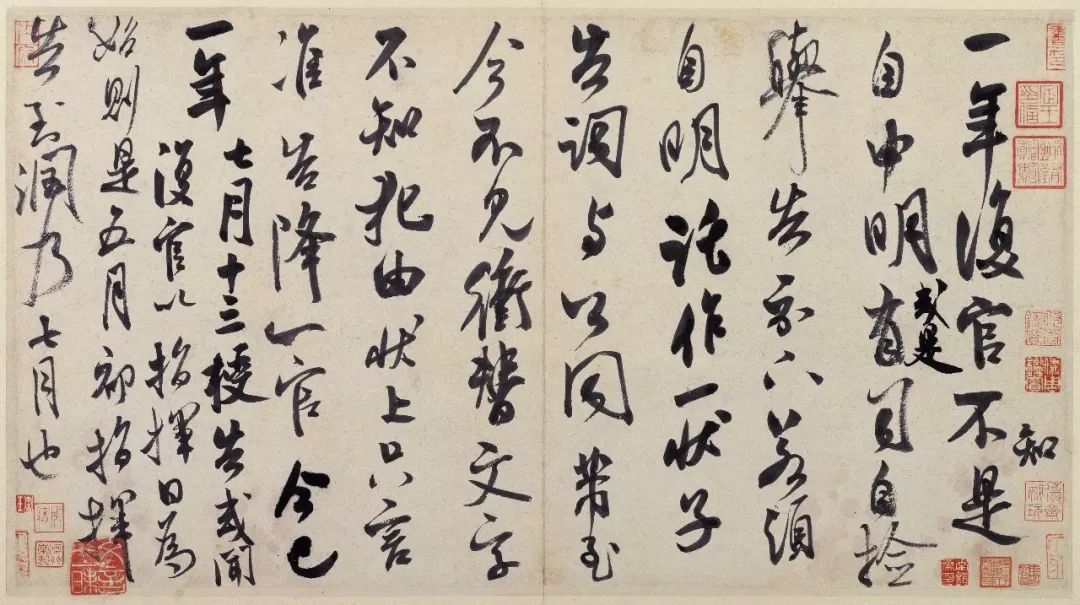 一年復官不知是
自申明或是有司自檢
舉告示下若須
自明託作一狀子
告詞与公同帶至
今不見衝替文字
不知犯由狀上只言
准告降一官今已
一年七月十三授告或聞
復官以指揮日為
始則是五月初指揮
告到潤乃七月也